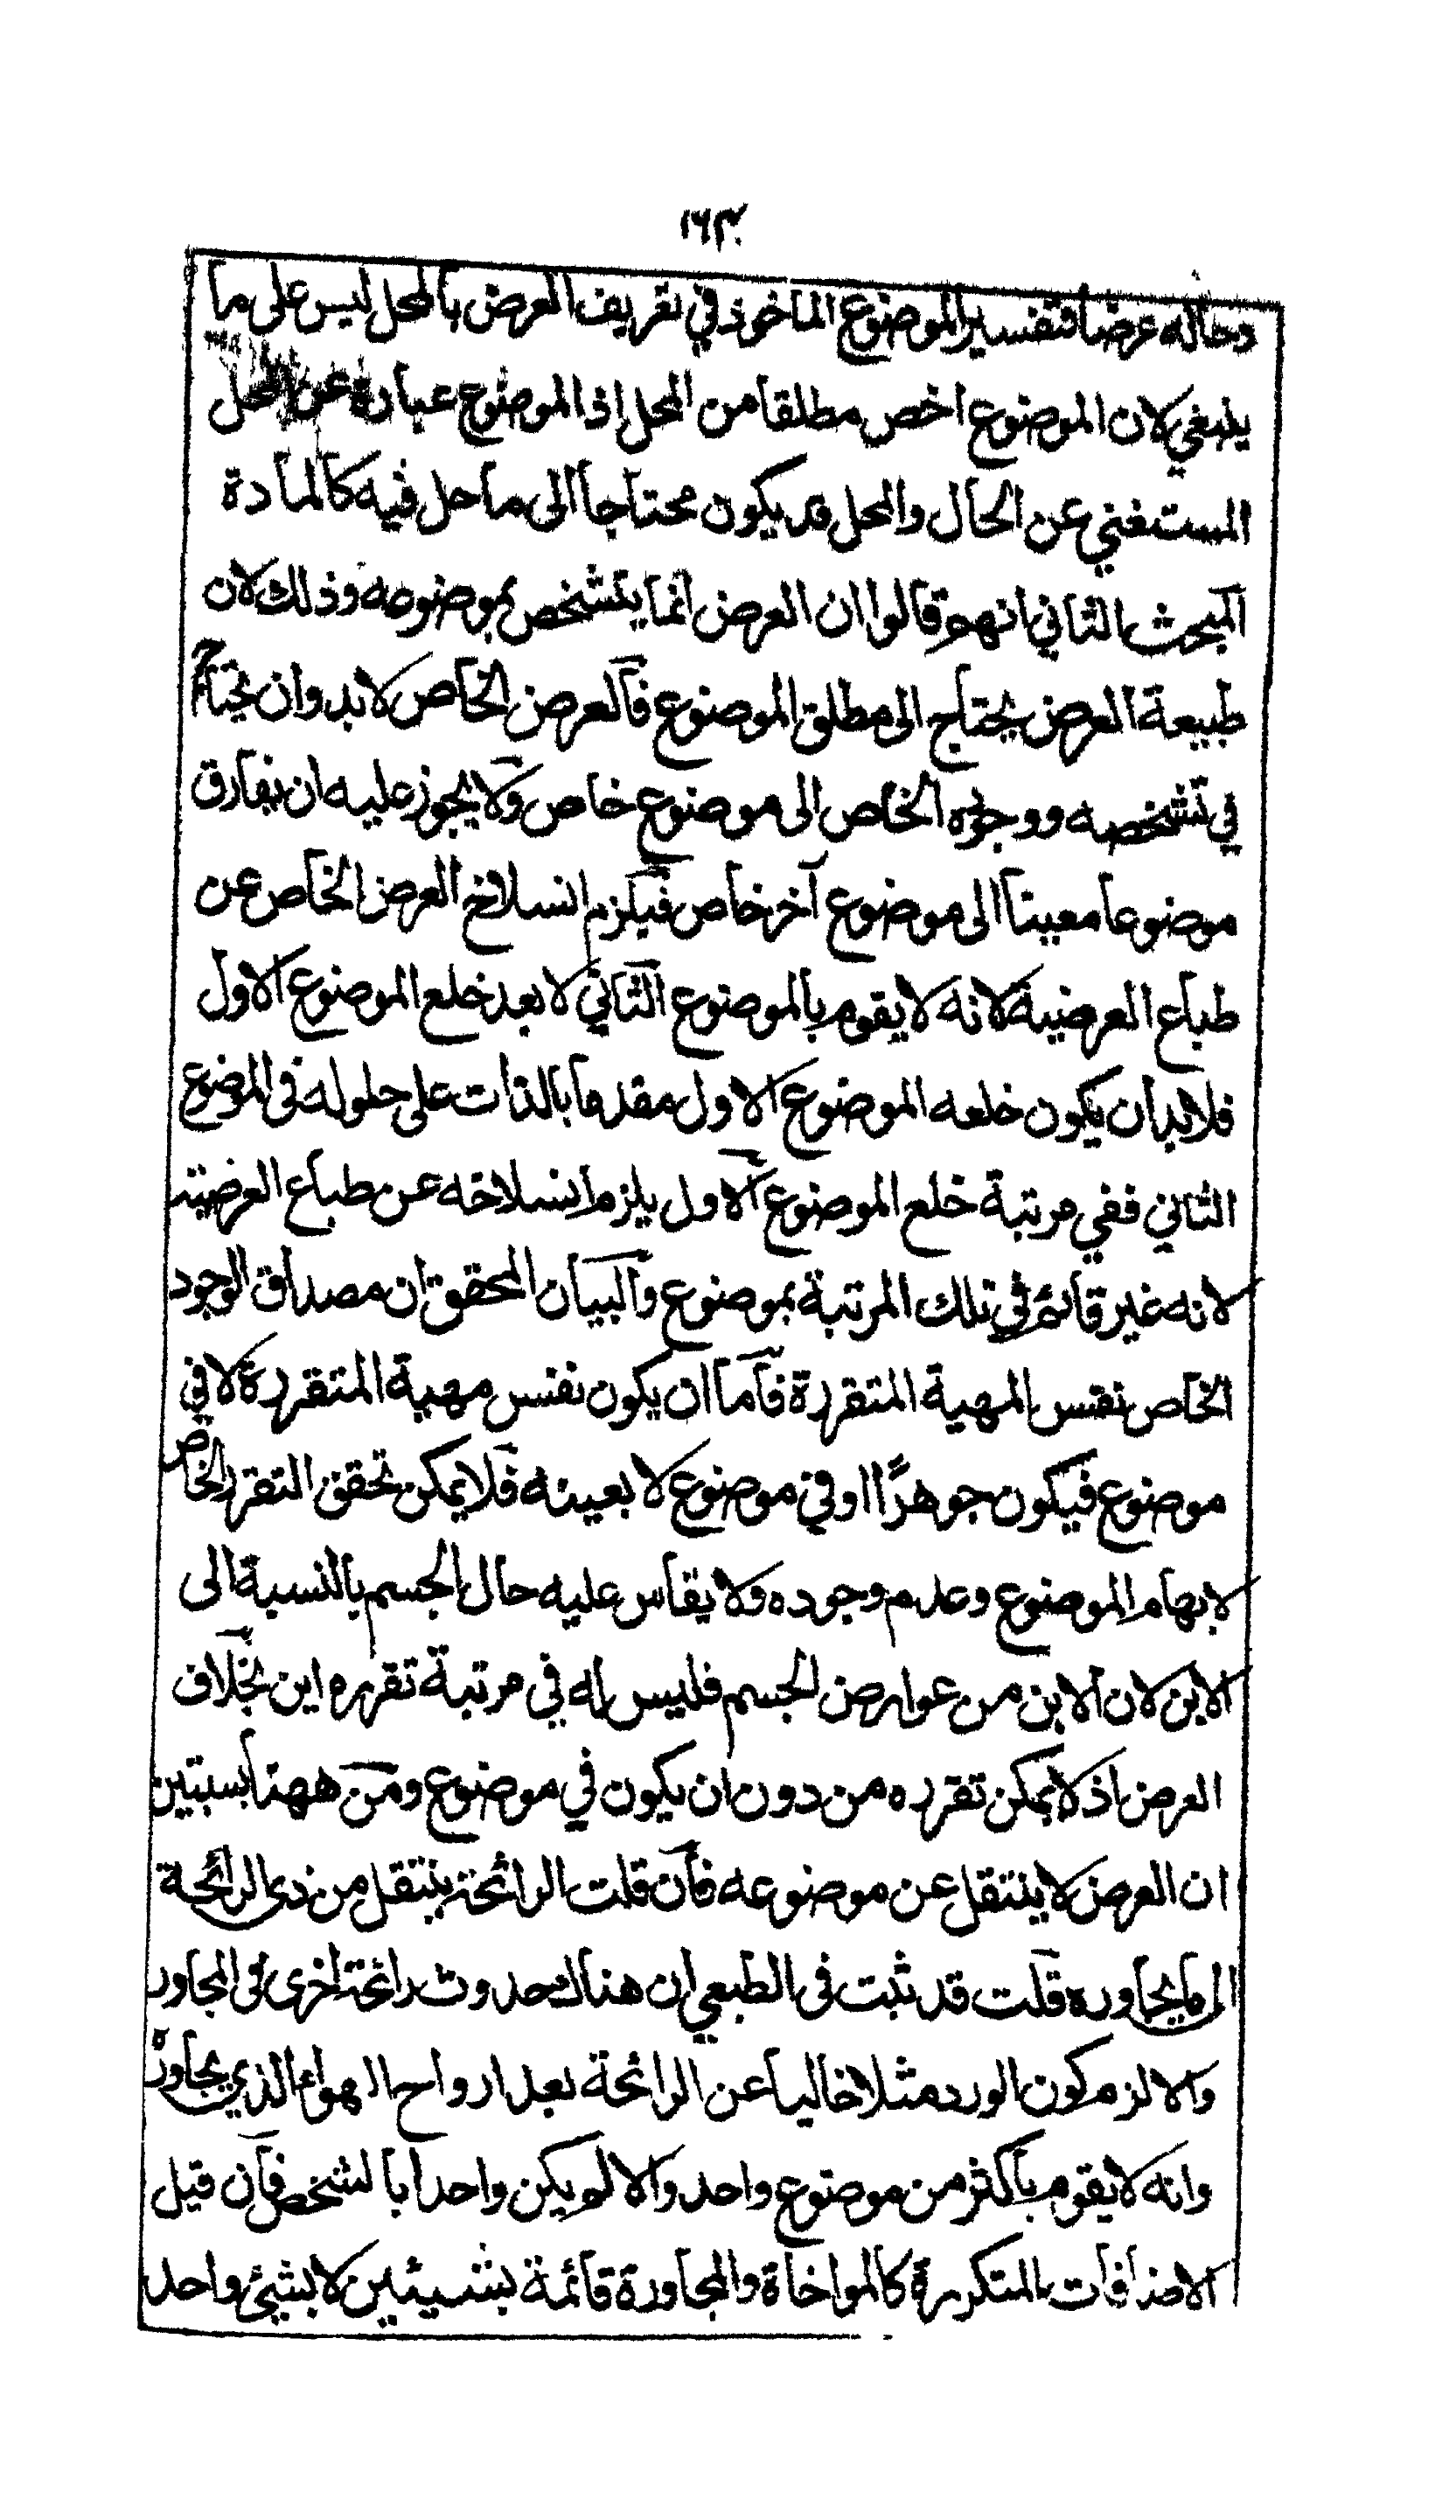 ١٦٣
وحاله عرضا فتفسير الموضوع الماخوذ في تعريف العرض بالمحل ليس على ما
ينبغي لان الموضوع اخص مطلقا من المحل اذ الموضوع عبارة عن المحل
المستغني عن الحال والمحل قد يكون محتاجا الى ما حل فيه كالمادة
المبحث الثاني انهم قالوا ان العرض انما يتشخص بموضوعه وذلك لان
طبيعة العرض يحتاج الى مطلق الموضوع فالعرض الخاص لا بد وان يحتاج
في تشخصه ووجوده الخاص الى موضوع خاص ولا يجوز عليه ان يفارق
موضوعا معينا الى موضوع آخر خاص فيلزم انسلاخ العرض الخاص عن
طباع العرضية لانه لا يقوم بالموضوع الثاني لا بعد خلع الموضوع الاول
فلا بد ان يكون خلعه الموضوع الاول مقدما بالذات على حلوله في الموضوع
الثاني ففي مرتبة خلع الموضوع الاول يلزم انسلاخه عن طباع العرضية
لانه غير قائم في تلك المرتبة بموضوع والبيان المحقق ان مصداق الوجود
الخاص نفس المهية المتقررة فاما ان يكون نفس مهية المتقررة لا في
موضوع فيكون جوهرًا او في موضوع لا بعينه فلا يمكن تحقق التقرر الخاص
لابهام الموضوع وعدم وجوده ولا يقاس عليه حال الجسم بالنسبة الى
الاين لان الاين من عوارض الجسم فليس له في مرتبة تقرره اين بخلاف
العرض اذ لا يمكن تقرره من دون ان يكون في موضوع ومن ههنا يستبين
ان العرض لا ينتقل عن موضوعه فان قلت الرائحة ينتقل من ذي الرائحة
الى ما يجاوره قلت قد ثبت في الطبعي ان هناك حدوث رائحة اخرى في المجاور
والا لزم كون الورد مثلا خاليا عن الرائحة بعد ارواح الهواء الذي يجاوره
وانه لا يقوم باكثر من موضوع واحد والا لم يكن واحدا بالشخص فان قيل
الاضافات المتكررة كالمواخاة والمجاورة قائمة بشيئين لا بشيئ واحد